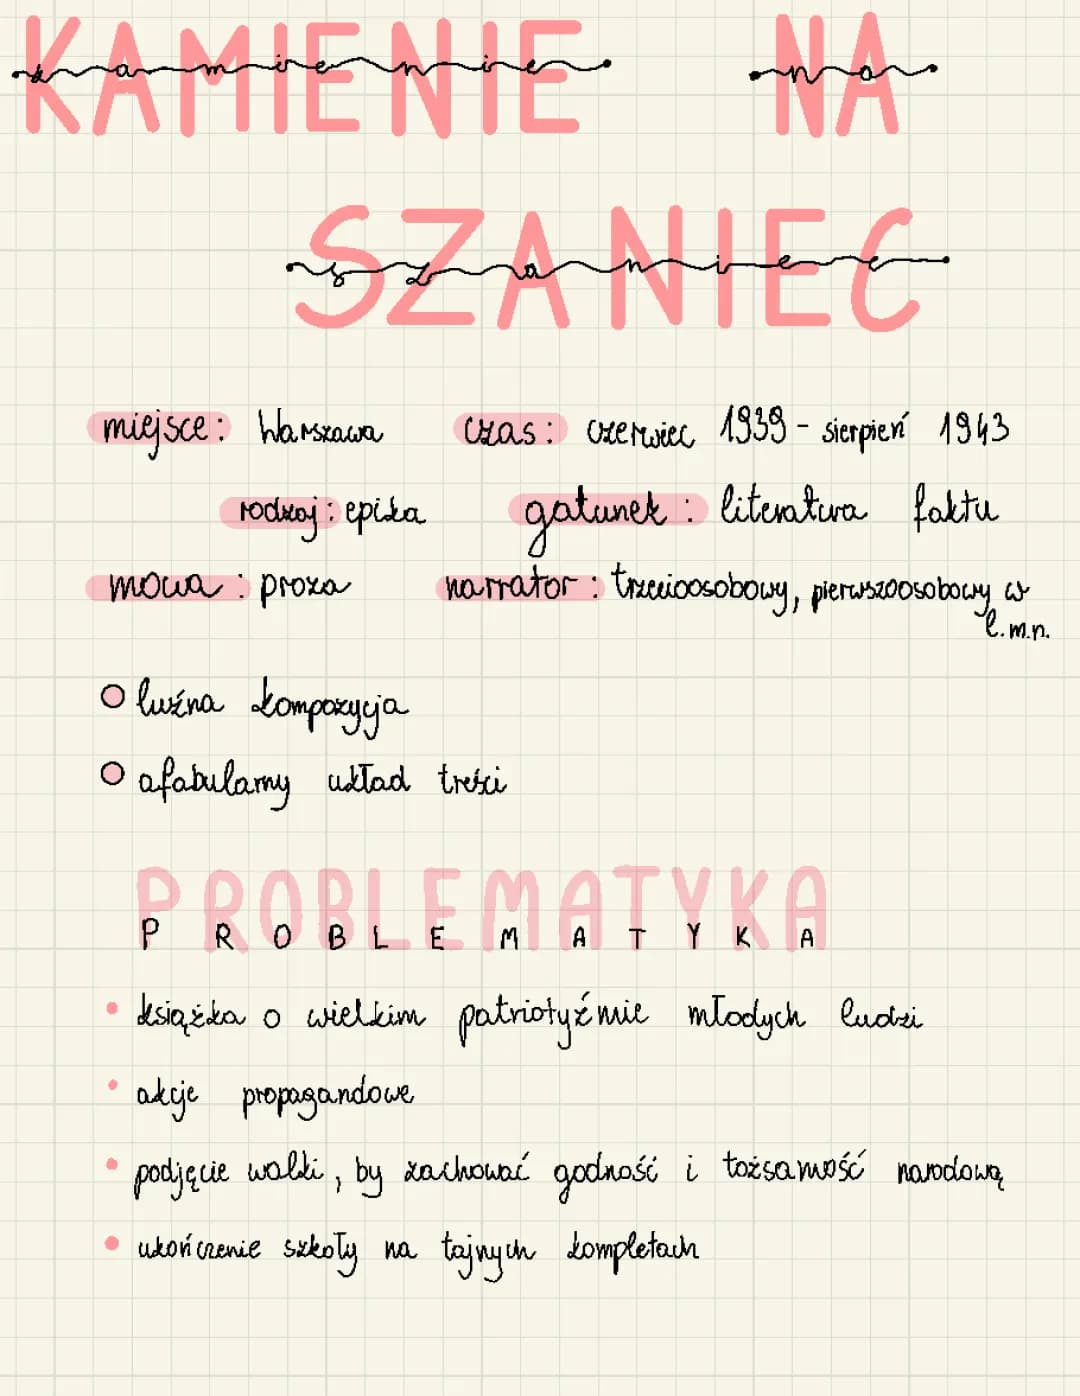 KAMIENIE NA
kamienie na
SZANIEC
szaniec
miejsce: Warszawa czas: czerwiec 1939 - sierpień 1943
rodzaj: epika gatunek: literatura faktu
mowa: proza narrator: trzecioosobowy, pierwszoosobowy w
l.m.n.
luźna kompozycja
afabularny układ treści
PROBLEMATYKA
PROBLEMATYKA
• książka o wielkim patriotyźmie młodych ludzi
• akcje propagandowe
• podjęcie walki, by zachować godność i tożsamość narodową
• ukończenie szkoły na tajnych kompletach